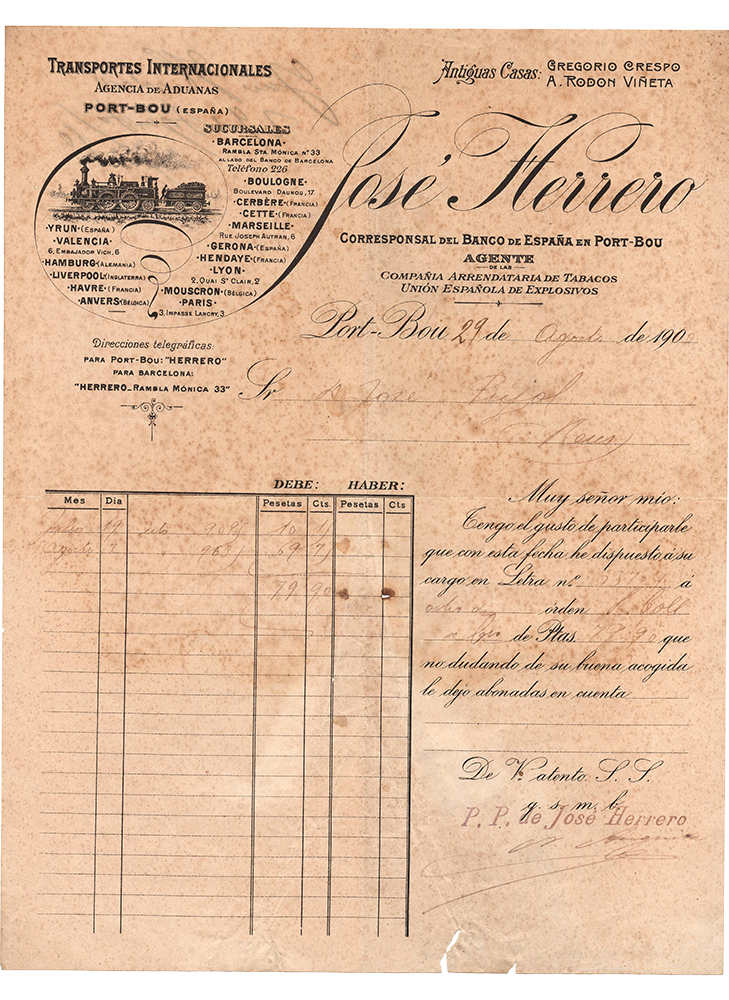 TRANSPORTES INTERNACIONALES
AGENCIA DE ADUANAS
PORT-BOU (ESPAÑA)
Antiguas Casas: GREGORIO CRESPO
A. RODON VIÑETA
SUCURSALES
·BARCELONA·
RAMBLA STA. MÓNICA Nº 33
AL LADO DEL BANCO DE BARCELONA
Teléfono 226
·BOULOGNE·
BOULEVARD DAUNOU, 17
·CERBÈRE·(FRANCIA)
·CETTE·(FRANCIA)
·MARSEILLE·
RUE JOSEPH AUTRAN, 6
·GERONA·(ESPAÑA)
·HENDAYE·(FRANCIA)
·LYON·
2, QUAI St CLAIR, 2
·MOUSCRON·(BÉLGICA)
·PARIS·
3, IMPASSE LANCRY, 3
·YRUN·(ESPAÑA)
·VALENCIA·
6, EMBAJADOR VICH, 6
·HAMBURG·(ALEMANIA)
·LIVERPOOL·(INGLATERRA)
·HAVRE·(FRANCIA)
·ANVERS·(BÉLGICA)
José Herrero
CORRESPONSAL DEL BANCO DE ESPAÑA EN PORT-BOU
AGENTE
DE LAS
COMPAÑIA ARRENDATARIA DE TABACOS
UNIÓN ESPAÑOLA DE EXPLOSIVOS
Port-Bou 29 de Agosto de 1900
Direcciones telegráficas:
PARA PORT-BOU: "HERRERO"
PARA BARCELONA:
"HERRERO-RAMBLA MÓNICA 33"
Sr D José Pujol
Reus
DEBE: HABER:
Mes Dia Pesetas Cts. Pesetas Cts
Julio 19 10
Agosto 69
79 90
Muy señor mio:
Tengo el gusto de participarle
que con esta fecha he dispuesto á su
cargo en Letra nº á
ocho d/v órden
de Ptas. 79.90 que
no dudando de su buena acogida
le dejo abonadas en cuenta
De V. atento S. S.
q. s. m. b.
P. P. de José Herrero